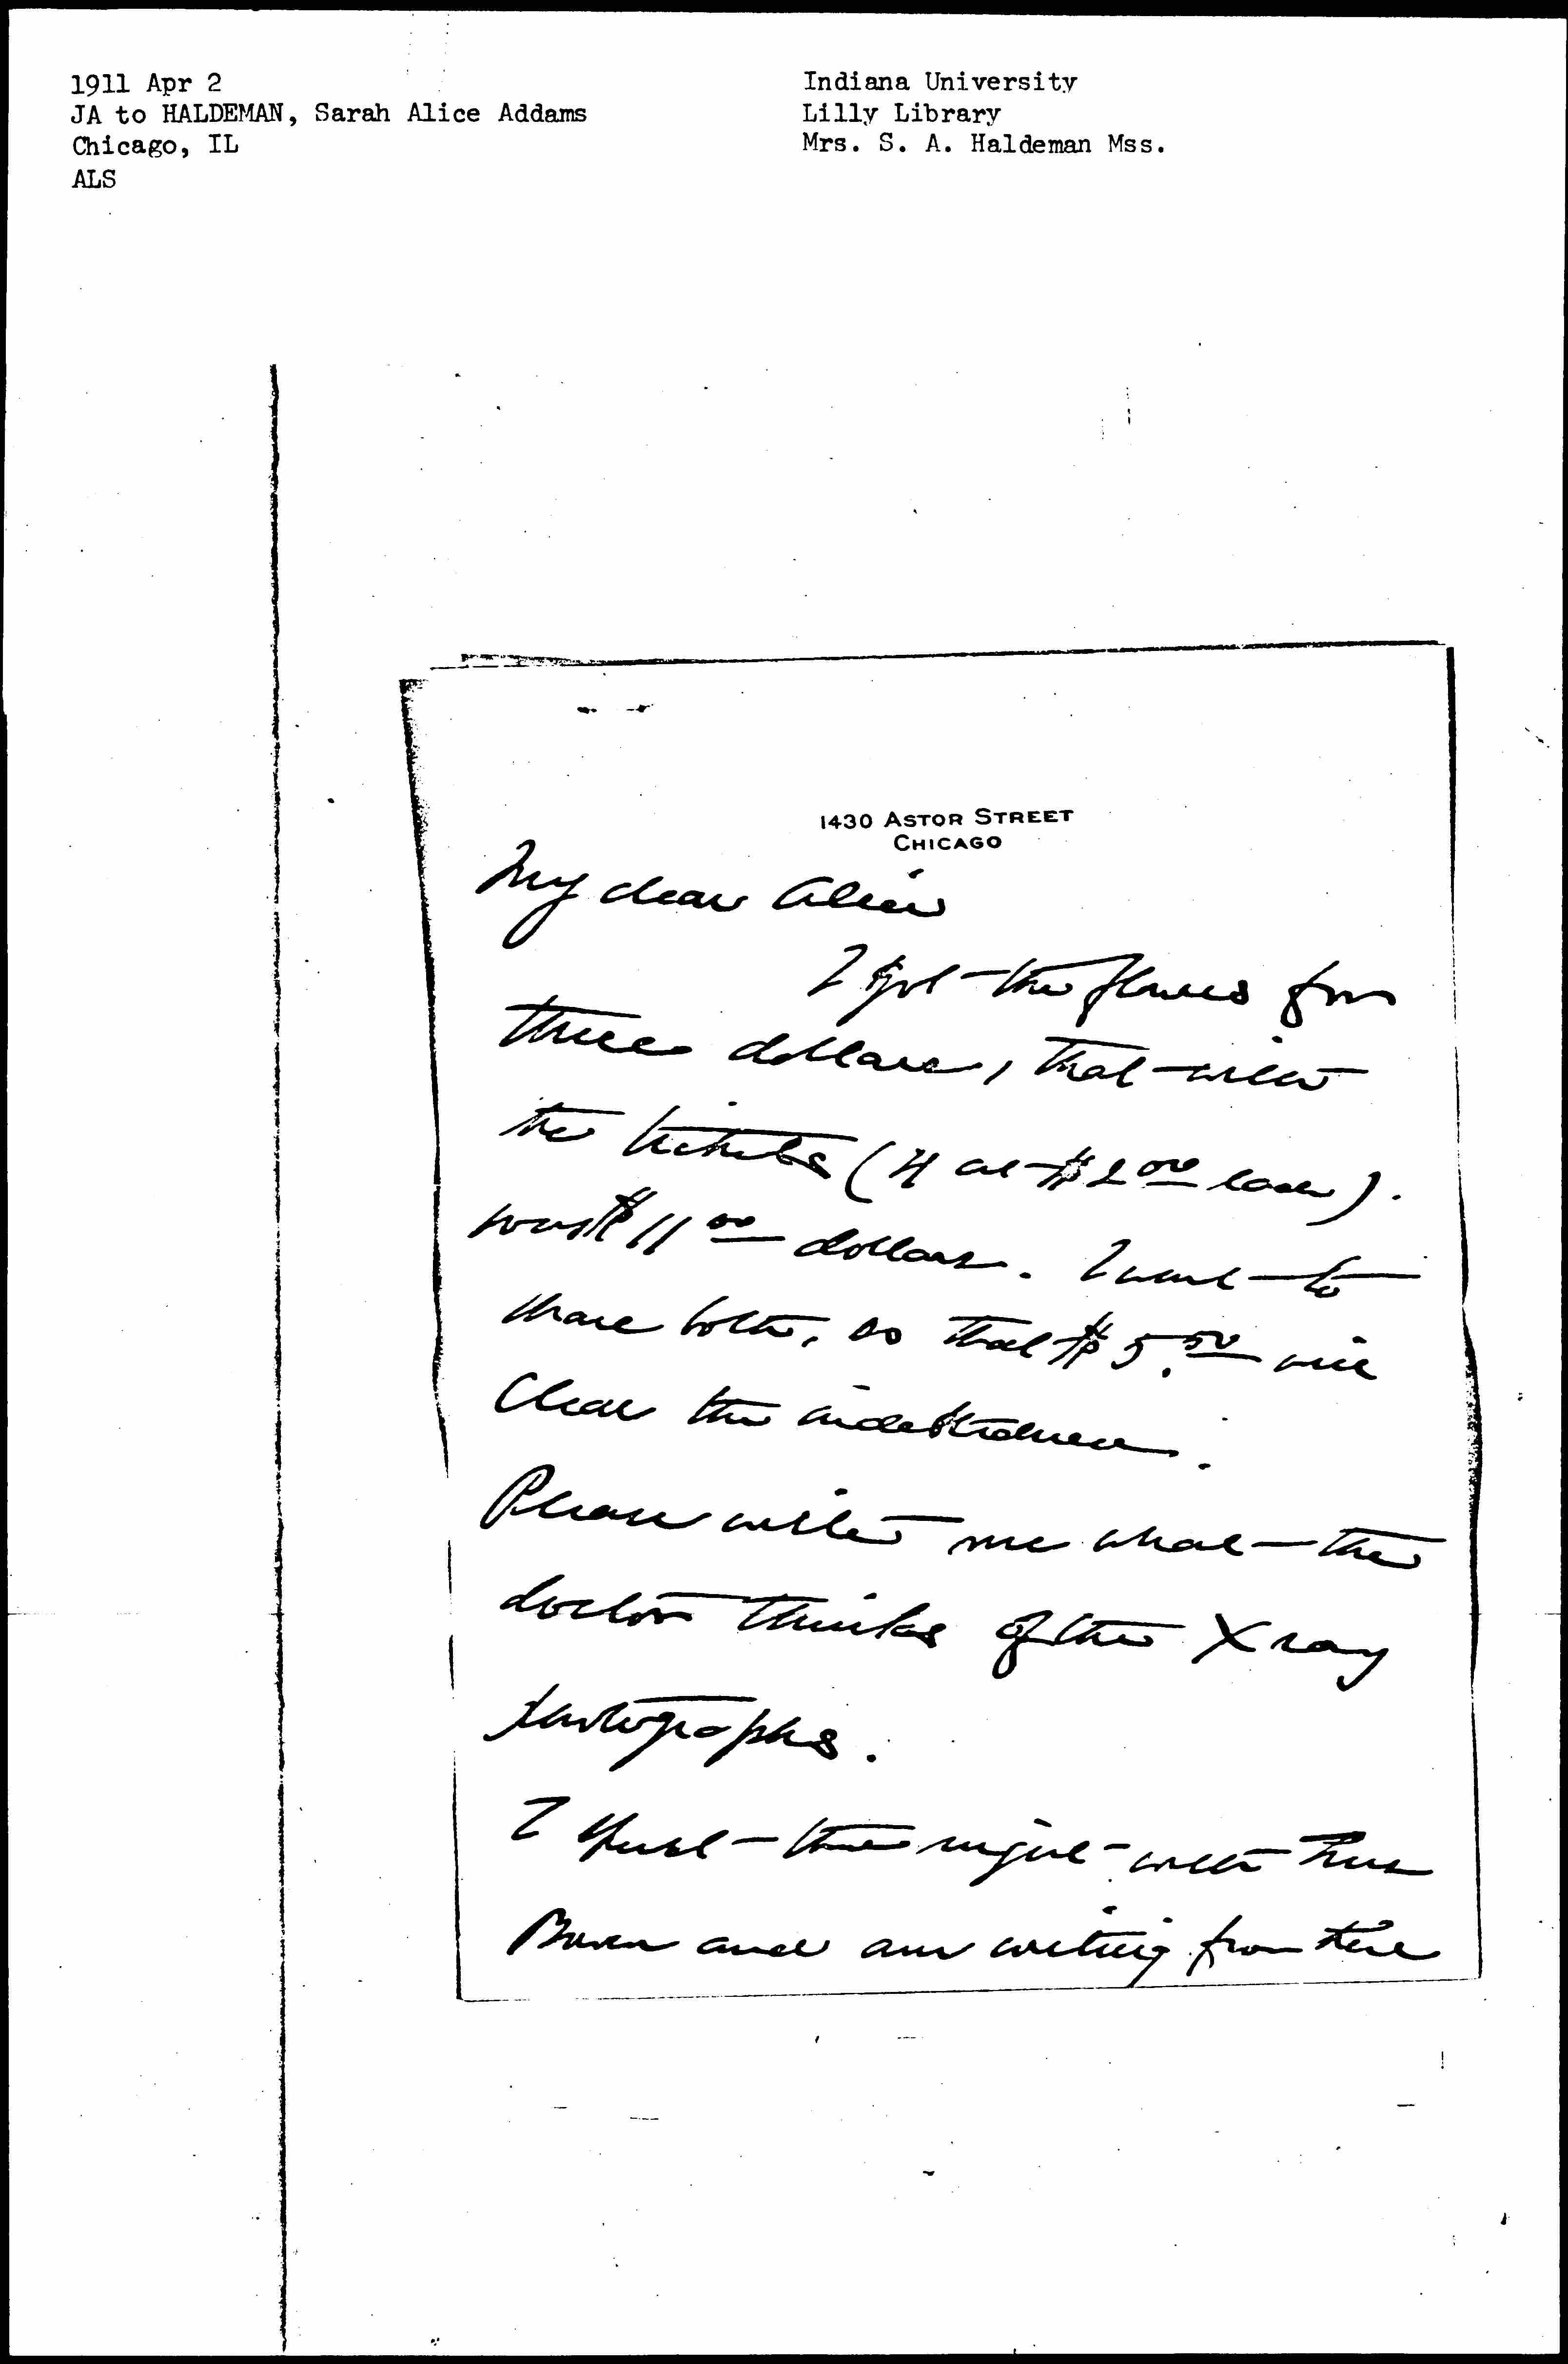 1911 Apr 2
JA to HALDEMAN, Sarah Alice Addams
Chicago, IL
ALS
Indiana University
Lilly Library
Mrs. S. A. Haldeman Mss.
1430 ASTOR STREET
CHICAGO
My dear Alice
I got the flowers for
three dollars, that with
the tickets (4 at $2.00 each).
was $11.00 dollars. I want to
share both, so that $5.50 will
clear the indebtedness.
Please write me what the
doctor thinks of the X ray
photographs.
I spent the night with Mrs
Bowen and am writing from there